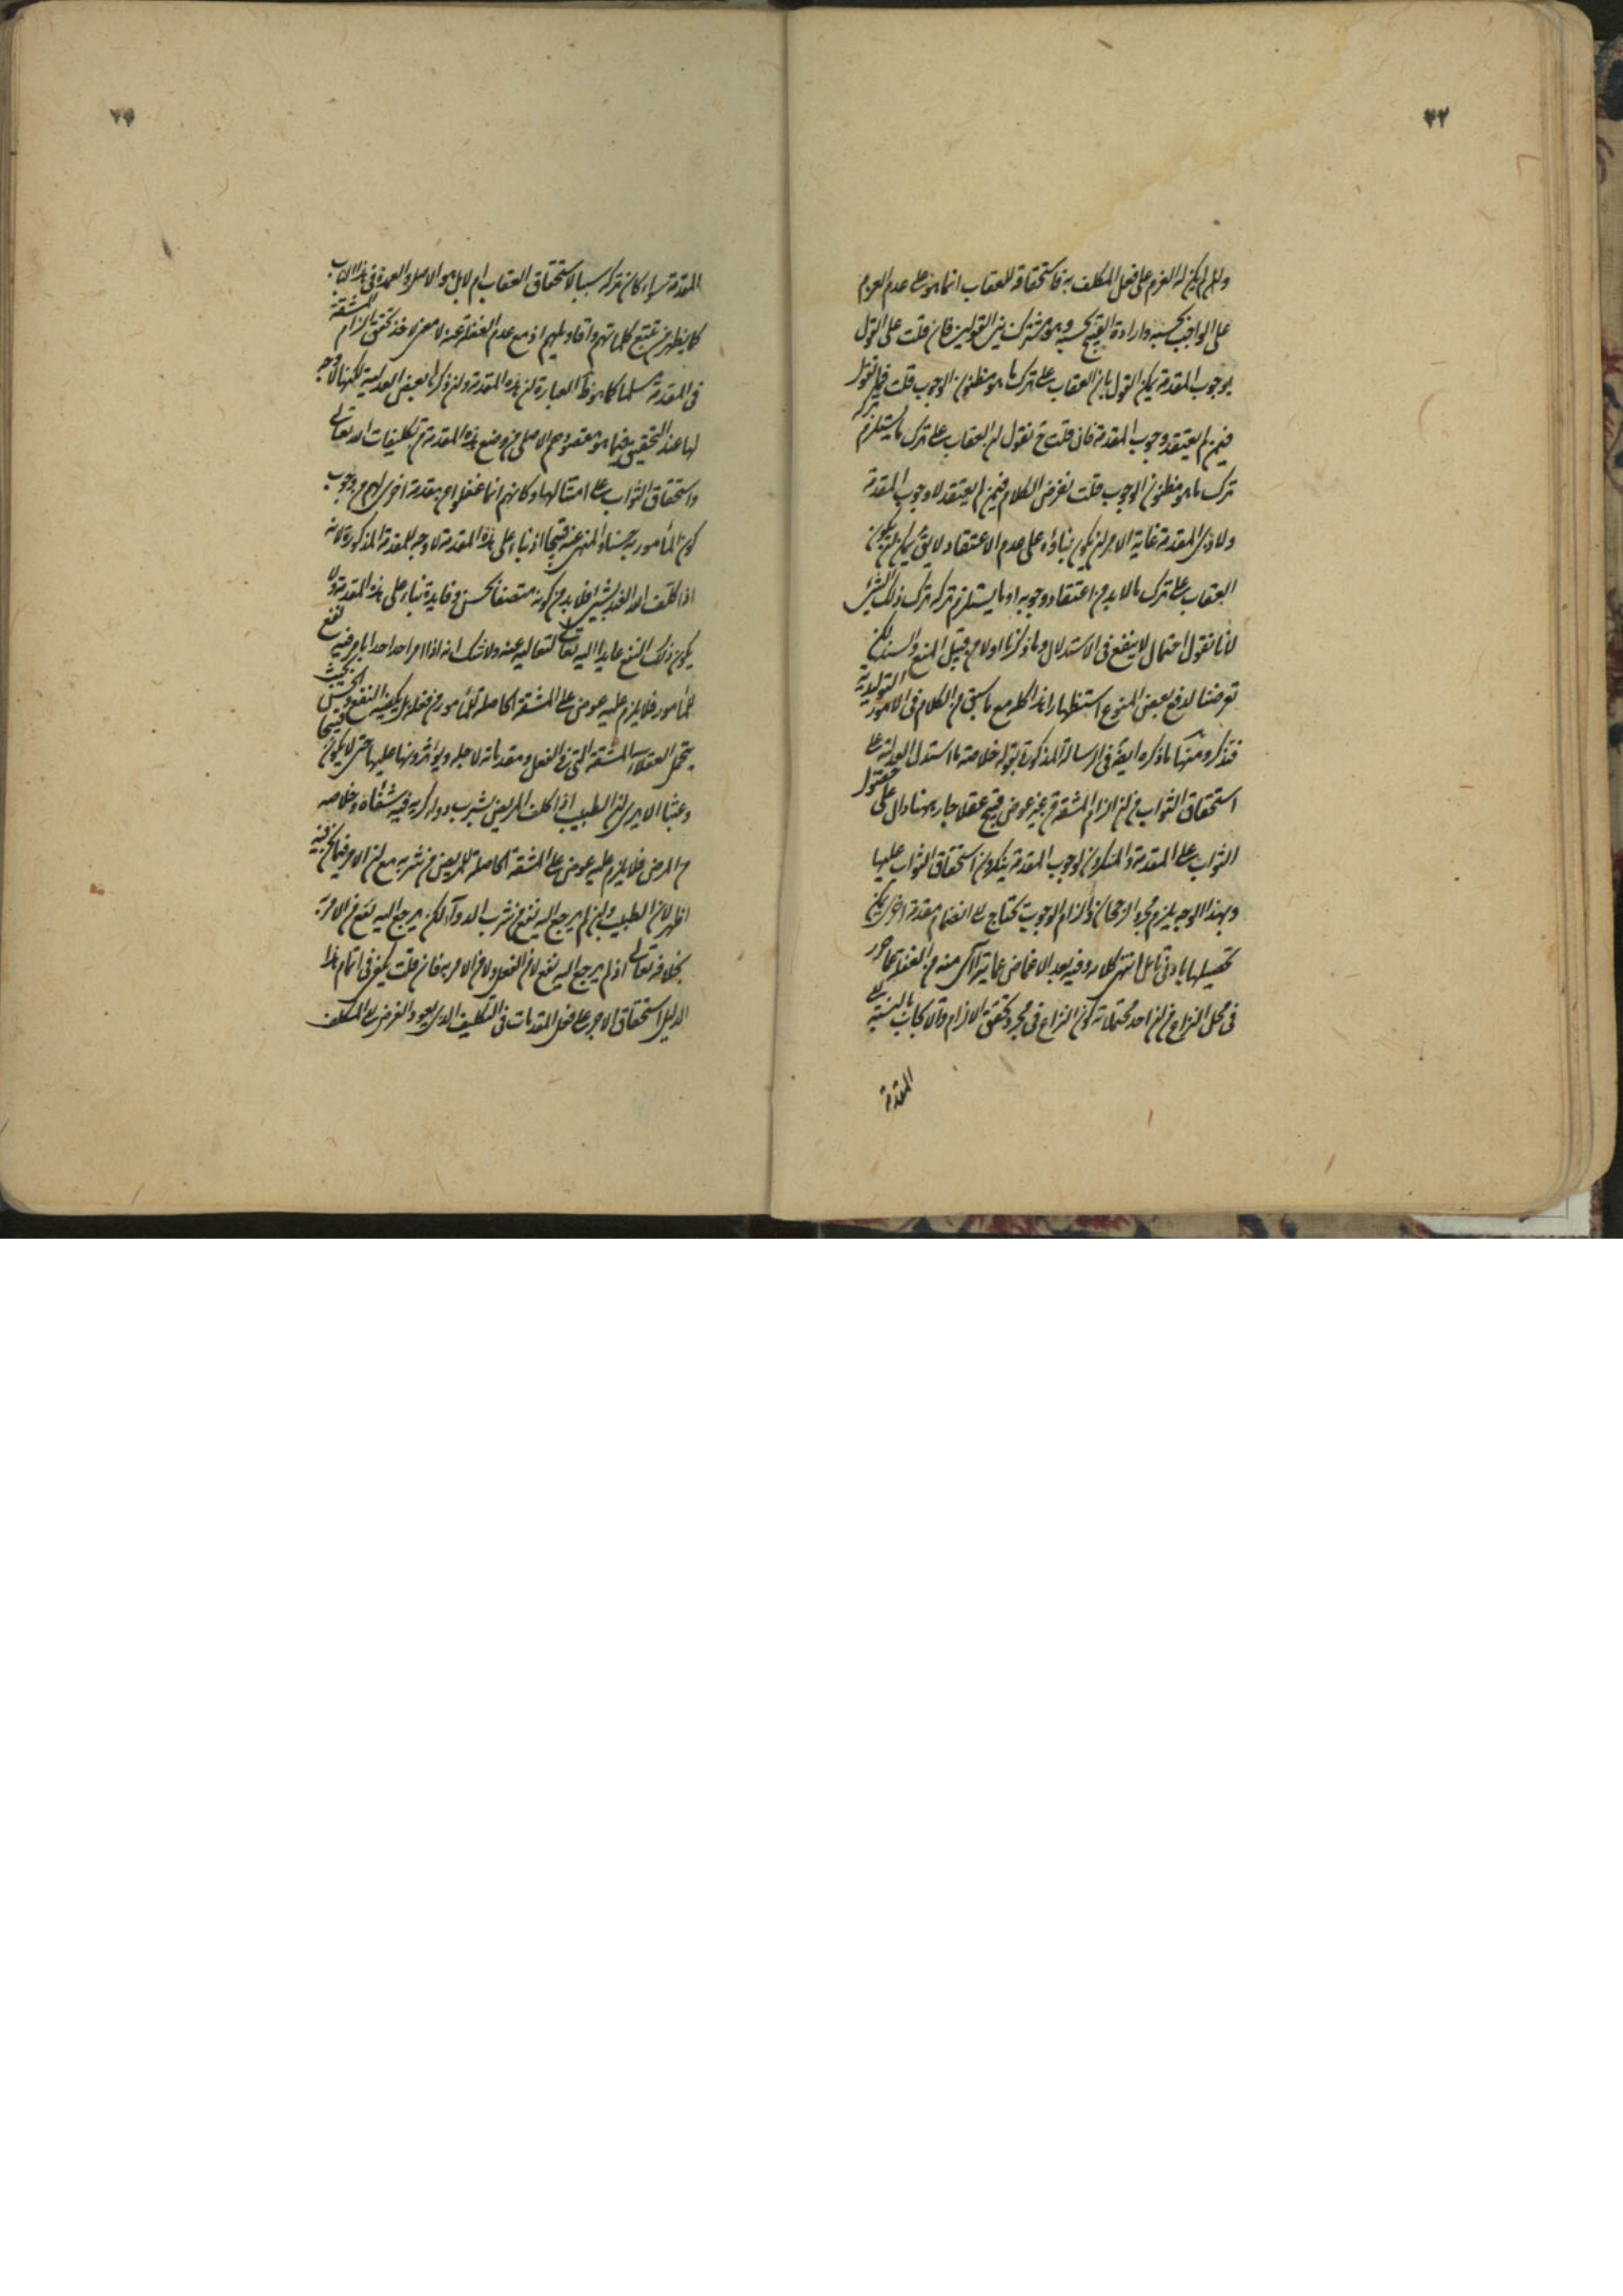 ٢٢
وان لم يكن له العزم على فعل المكلف به فاستحقاقه للعقاب انما هو على عدم العزم
على الواجب بحسبه وارادة القبيح بحسبه وهو مشترك بين القولين فان قلت على القول
بوجوب المقدمة يمكن القول بان العقاب على ترك ما هو مظنون الوجوب قلت فما تقول
فيمن لم يعتقد وجوب المقدمة فان قلت ح نقول ان العقاب على ترك ما يستلزم تركه
ترك ما هو مظنون الوجوب قلت نفرض الكلام فيمن لم يعتقد لا وجوب المقدمة
ولا ذى المقدمة غاية الامر ان يكون بناؤه على عدم الاعتقاد لا يق يمكن ان يكون
العقاب على ترك ما لا بد من اعتقاد وجوبه او ما يستلزم تركه ترك ذلك الشئ
لانا نقول احتمال لا ينفع فى الاستدلال وما ذكرنا اولا من قبيل المنع والسند لكن
تعرضنا لدفع بعض المنوع استظهارا هذا كله مع ما سبق من الكلام فى الامور التوليدية
فتذكر ومنها ما ذكره ايضا فى الرسالة المذكورة بقوله خلاصة ما استدل العدلية على
استحقاق الثواب من ان الزام المشقة من غير عوض قبيح عقلا جار ههنا دال على حصول
الثواب على المقدمة والمنكرون لوجوب المقدمة ينكرون استحقاق الثواب عليها
وبهذا الوجه يلزم مجرد الرجحان والزام الوجوب يحتاج الى انضمام مقدمة اخرى يمكن
تحصيلها بادنى تامل انتهى كلامه وفيه بعد الاغماض عما يتراآى منه من الغفلة عما حرر
فى محل النزاع من ان احد محتملاته كون النزاع فى مجرد تحقق الالزام والايجاب بالنسبة الى
المقدمة
٢٣
المقدمة سواء كان تركه سببا لاستحقاق العقاب ام لا بل هو الاصل والعمدة فى هذا الباب
كما يظهر من تتبع كلماتهم واقاويلهم اذ مع عدم الغفلة عنه لا معنى لاخذ تحقق الزام المشقة
فى المقدمة مسلما كما هو ظ العبارة ان هذه المقدمة وان ذكرها بعض العدلية لكنها لا وجه
لها عند التحقيق فيما هو مقصودهم الاصلى من وضع هذه المقدمة من تكليفات الله تعالى
واستحقاق الثواب على امتثالها وكانهم انما غفلوا من مقدمة اخرى لهم من وجوب
كون المأمور به حسنا والمنهى عنه قبيحا اذ بناء على هذه المقدمة لا وجه للمقدمة المذكورة لانه
اذا كلف الله العبد بشئ فلا بد من كونه متصفا بحسن وفايدة بناء على هذه المقدمة ولا
يكون ذلك النفع عايدا اليه تعالى لتعاليه عنه ولا شك انه اذا امر احد احدا بامر فيه نفع
للمأمور فلا يلزم عليه عوض على المشقة الحاصلة للمأمور من فعله بل يكفيه النفع والحسن بحيث
يتحمل العقلاء المشقة التى فى الفعل ومقدماته لاجله ويؤثرونها عليها حتى لا يكون قبيحا
وعبثا الا يرى ان الطبيب اذا كلف المريض بشرب دواء كريه فيه شفاه وخلاصه
من المرض فلا يلزم عليه عوض على المشقة الحاصلة للمريض من شربه مع ان الامر فيما نحن فيه
اظهر لان الطبيب وان لم يرجع اليه نفع من شرب الدوآء لكن يرجع اليه نفع من الامر به
بخلافه تعالى اذ لم يرجع اليه نفع لا من الفعل ولا من الامر به فان قلت يكفى فى اتمام هذا
الدليل استحقاق الاجر على فعل المقدمات فى التكليف الذى يعود الغرض الى المكلف